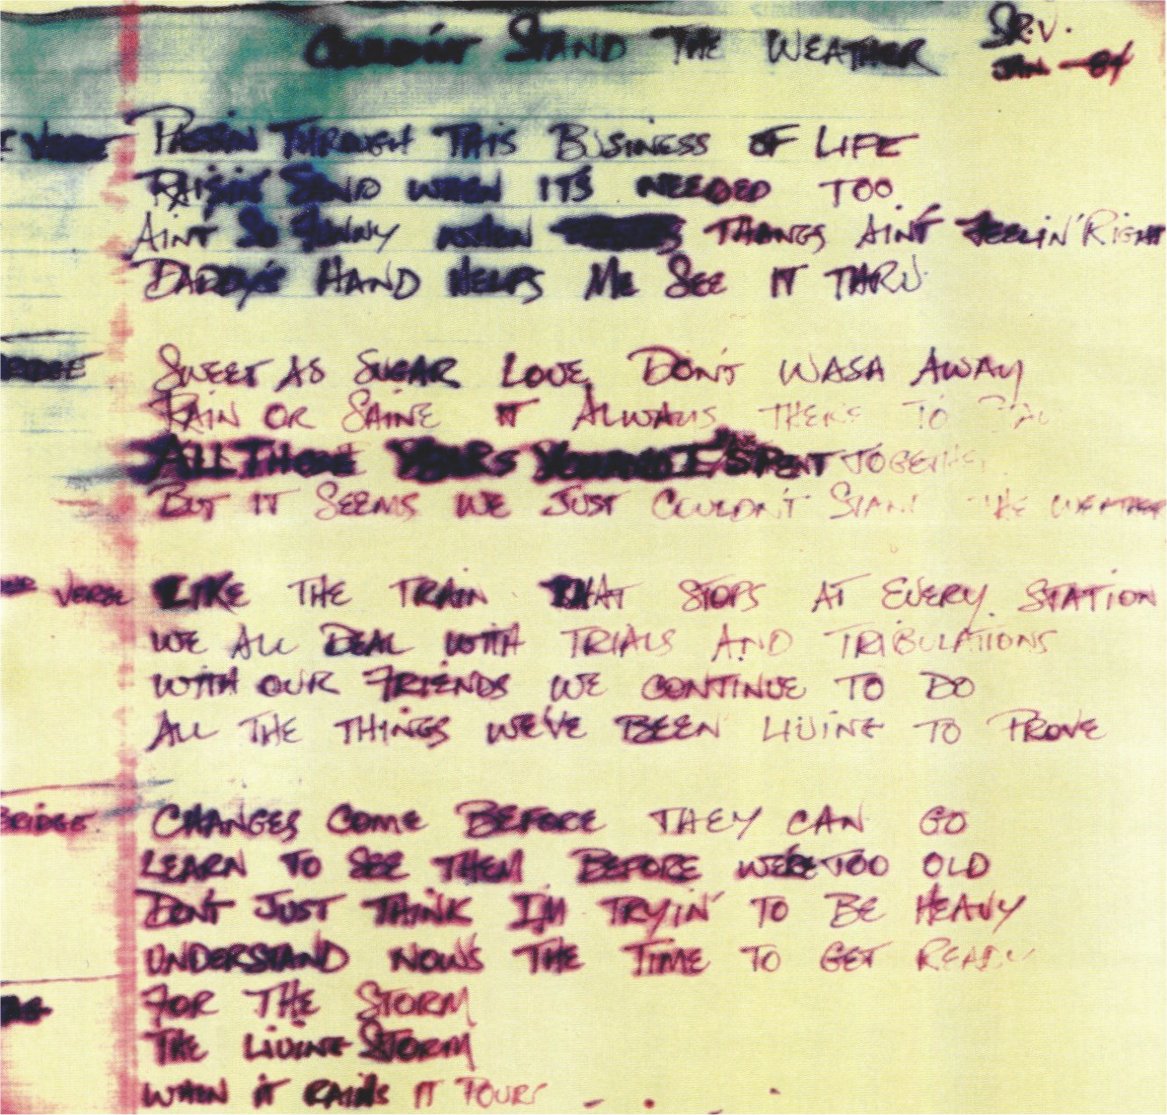 COULDN'T STAND THE WEATHER S.R.V.
JAN - 84
VERSE PASSIN THROUGH THIS BUSINESS OF LIFE
RAISIN SAND WHEN ITS NEEDED TOO
AINT SO FUNNY WHEN THANGS AINT FEELIN' RIGHT
DADDY'S HAND HELPS ME SEE IT THRU
SWEET AS SUGAR LOVE DON'T WASH AWAY
RAIN OR SHINE IT ALWAYS THERE TO
ALL THOSE YEARS YOU AND I'VE SPENT TOGETHER
BUT IT SEEMS WE JUST COULDN'T STAND THE WEATHER
VERSE LIKE THE TRAIN THAT STOPS AT EVERY STATION
WE ALL DEAL WITH TRIALS AND TRIBULATIONS
WITH OUR FRIENDS WE CONTINUE TO DO
ALL THE THINGS WE'VE BEEN LIVING TO PROVE
BRIDGE CHANGES COME BEFORE THEY CAN GO
LEARN TO SEE THEM BEFORE WE'RE TOO OLD
DON'T JUST THINK I'M TRYIN' TO BE HEAVY
UNDERSTAND NOW'S THE TIME TO GET READY
FOR THE STORM
THE LIVING STORM
WHEN IT RAINS IT POURS